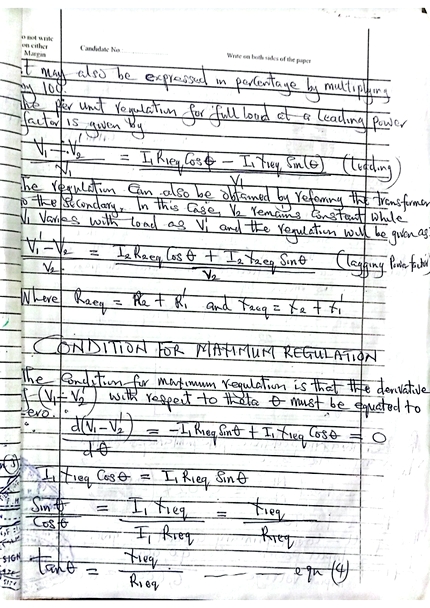 o not write
on either
Margin
Candidate No
Write on both sides of the paper
t may also be expressed in percentage by multiplying
by 100.
he per unit regulation for full load at a leading power
factor is given by
V₁ - V₂' / V₁ = I₁ R₁eq Cos θ - I₁ X₁eq Sin(θ) / V₁ (leading)
The regulation can also be obtained by referring the transformer
to the secondary. In this case, V₂ remains constant while
V₁ varies with load as V₁' and the regulation will be given as:
V₁' - V₂ / V₂ = I₂ R₂eq Cos θ + I₂ X₂eq Sin θ / V₂ (lagging Power factor)
Where R₂eq = R₂ + R₁' and X₂eq = X₂ + X₁'
CONDITION FOR MAXIMUM REGULATION
The Condition for maximum regulation is that the derivative
of (V₁ - V₂') with respect to theta θ must be equated to
zero.
∴ d(V₁ - V₂') / dθ = -I₁ R₁eq Sin θ + I₁ X₁eq Cos θ = 0
I₁ X₁eq Cos θ = I₁ R₁eq Sin θ
Sin θ / Cos θ = I₁ X₁eq / I₁ R₁eq = X₁eq / R₁eq
SIGN
tan θ = X₁eq / R₁eq eqn (4)